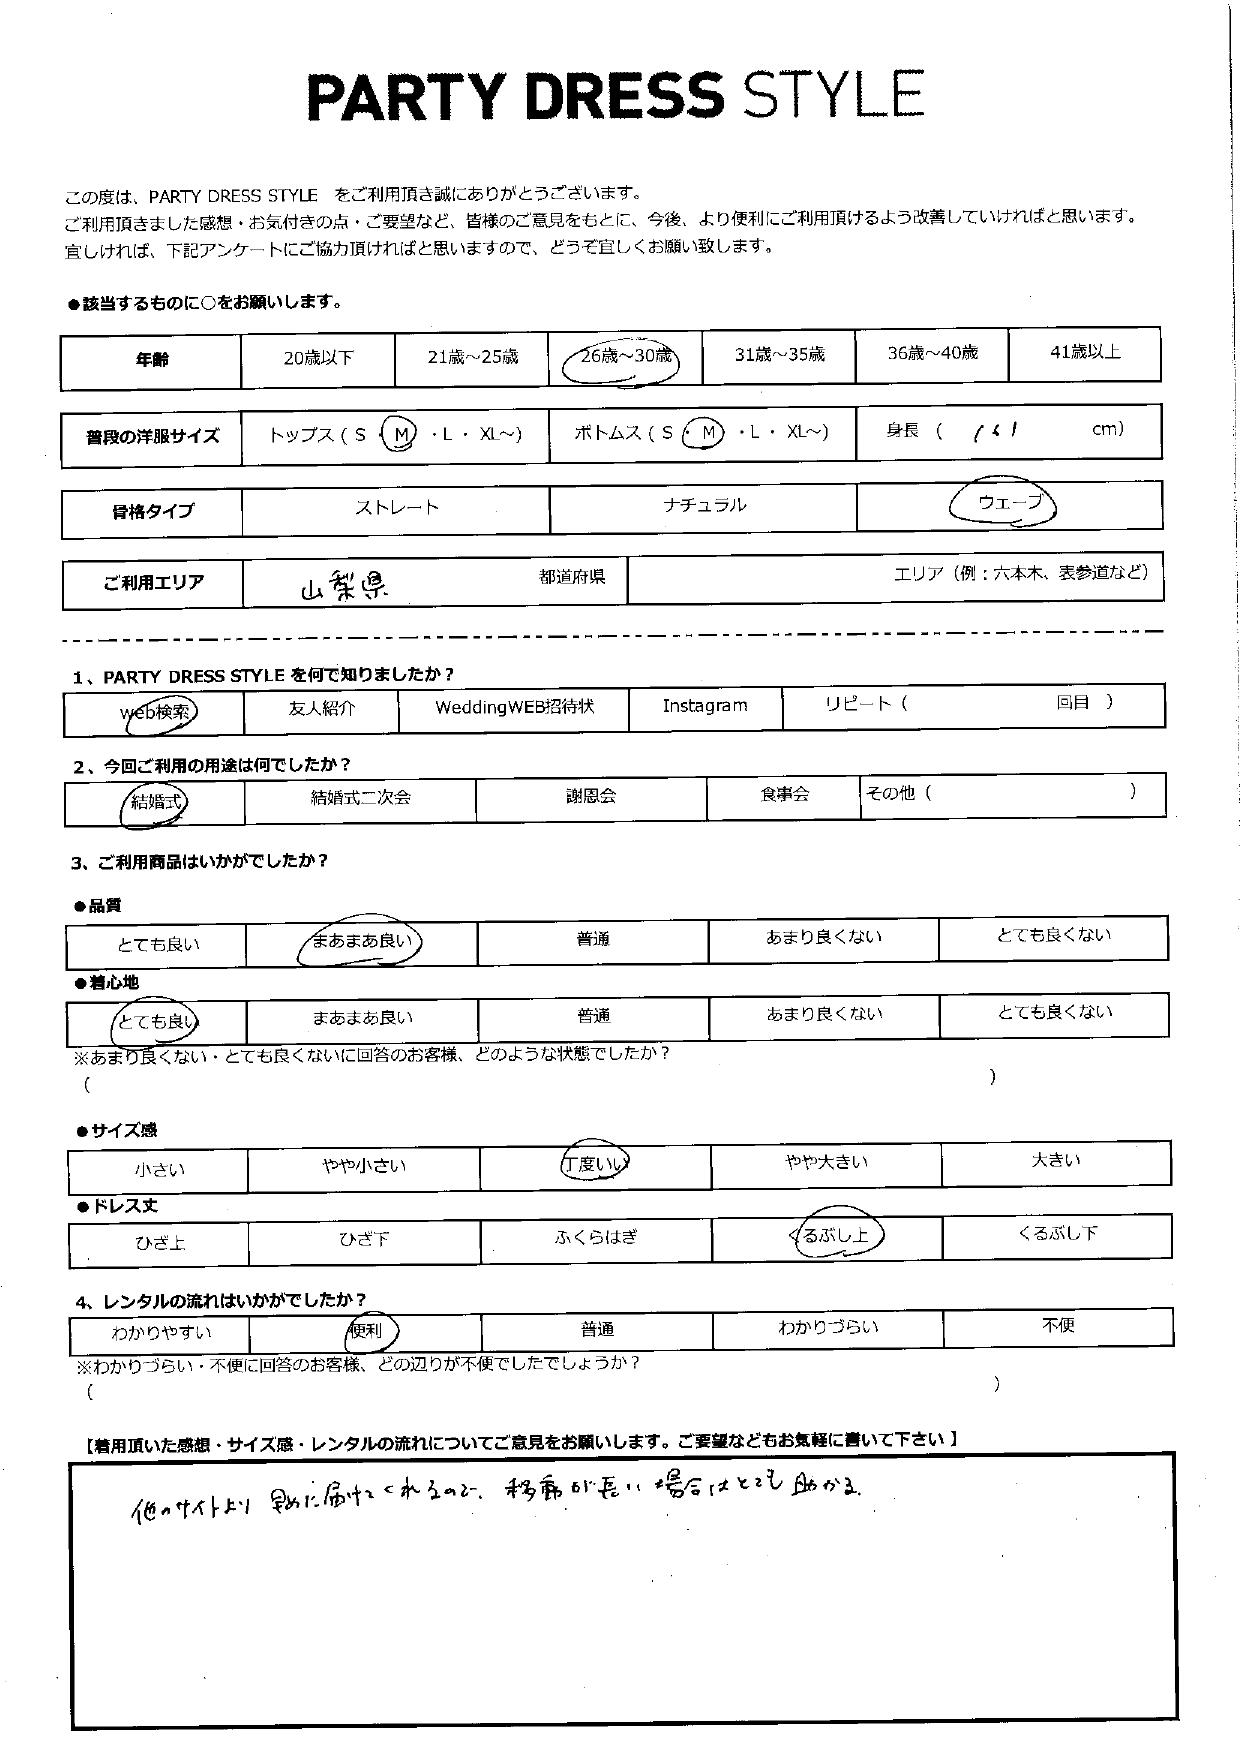 PARTY DRESS STYLE
この度は、PARTY DRESS STYLE をご利用頂き誠にありがとうございます。
ご利用頂きました感想・お気付きの点・ご要望など、皆様のご意見をもとに、今後、より便利にご利用頂けるよう改善していければと思います。
宜しければ、下記アンケートにご協力頂ければと思いますので、どうぞ宜しくお願い致します。
●該当するものに○をお願いします。
年齢 20歳以下 21歳～25歳 26歳～30歳 31歳～35歳 36歳～40歳 41歳以上
普段の洋服サイズ トップス ( S ・ M ・ L ・ XL～) ボトムス ( S ・ M ・ L ・ XL～) 身長 ( 161 cm)
骨格タイプ ストレート ナチュラル ウェーブ
ご利用エリア 山梨県 都道府県 エリア（例：六本木、表参道など）
1、PARTY DRESS STYLE を何で知りましたか？
web検索 友人紹介 WeddingWEB招待状 Instagram リピート ( 回目 )
2、今回ご利用の用途は何でしたか？
結婚式 結婚式二次会 謝恩会 食事会 その他 ( )
3、ご利用商品はいかがでしたか？
●品質
とても良い まあまあ良い 普通 あまり良くない とても良くない
●着心地
とても良い まあまあ良い 普通 あまり良くない とても良くない
※あまり良くない・とても良くないに回答のお客様、どのような状態でしたか？
( )
●サイズ感
小さい やや小さい 丁度いい やや大きい 大きい
●ドレス丈
ひざ上 ひざ下 ふくらはぎ くるぶし上 くるぶし下
4、レンタルの流れはいかがでしたか？
わかりやすい 便利 普通 わかりづらい 不便
※わかりづらい・不便に回答のお客様、どの辺りが不便でしたでしょうか？
( )
【着用頂いた感想・サイズ感・レンタルの流れについてご意見をお願いします。ご要望などもお気軽に書いて下さい】
他のサイトより早めに届けてくれるので、移動が長い場合はとても助かる。